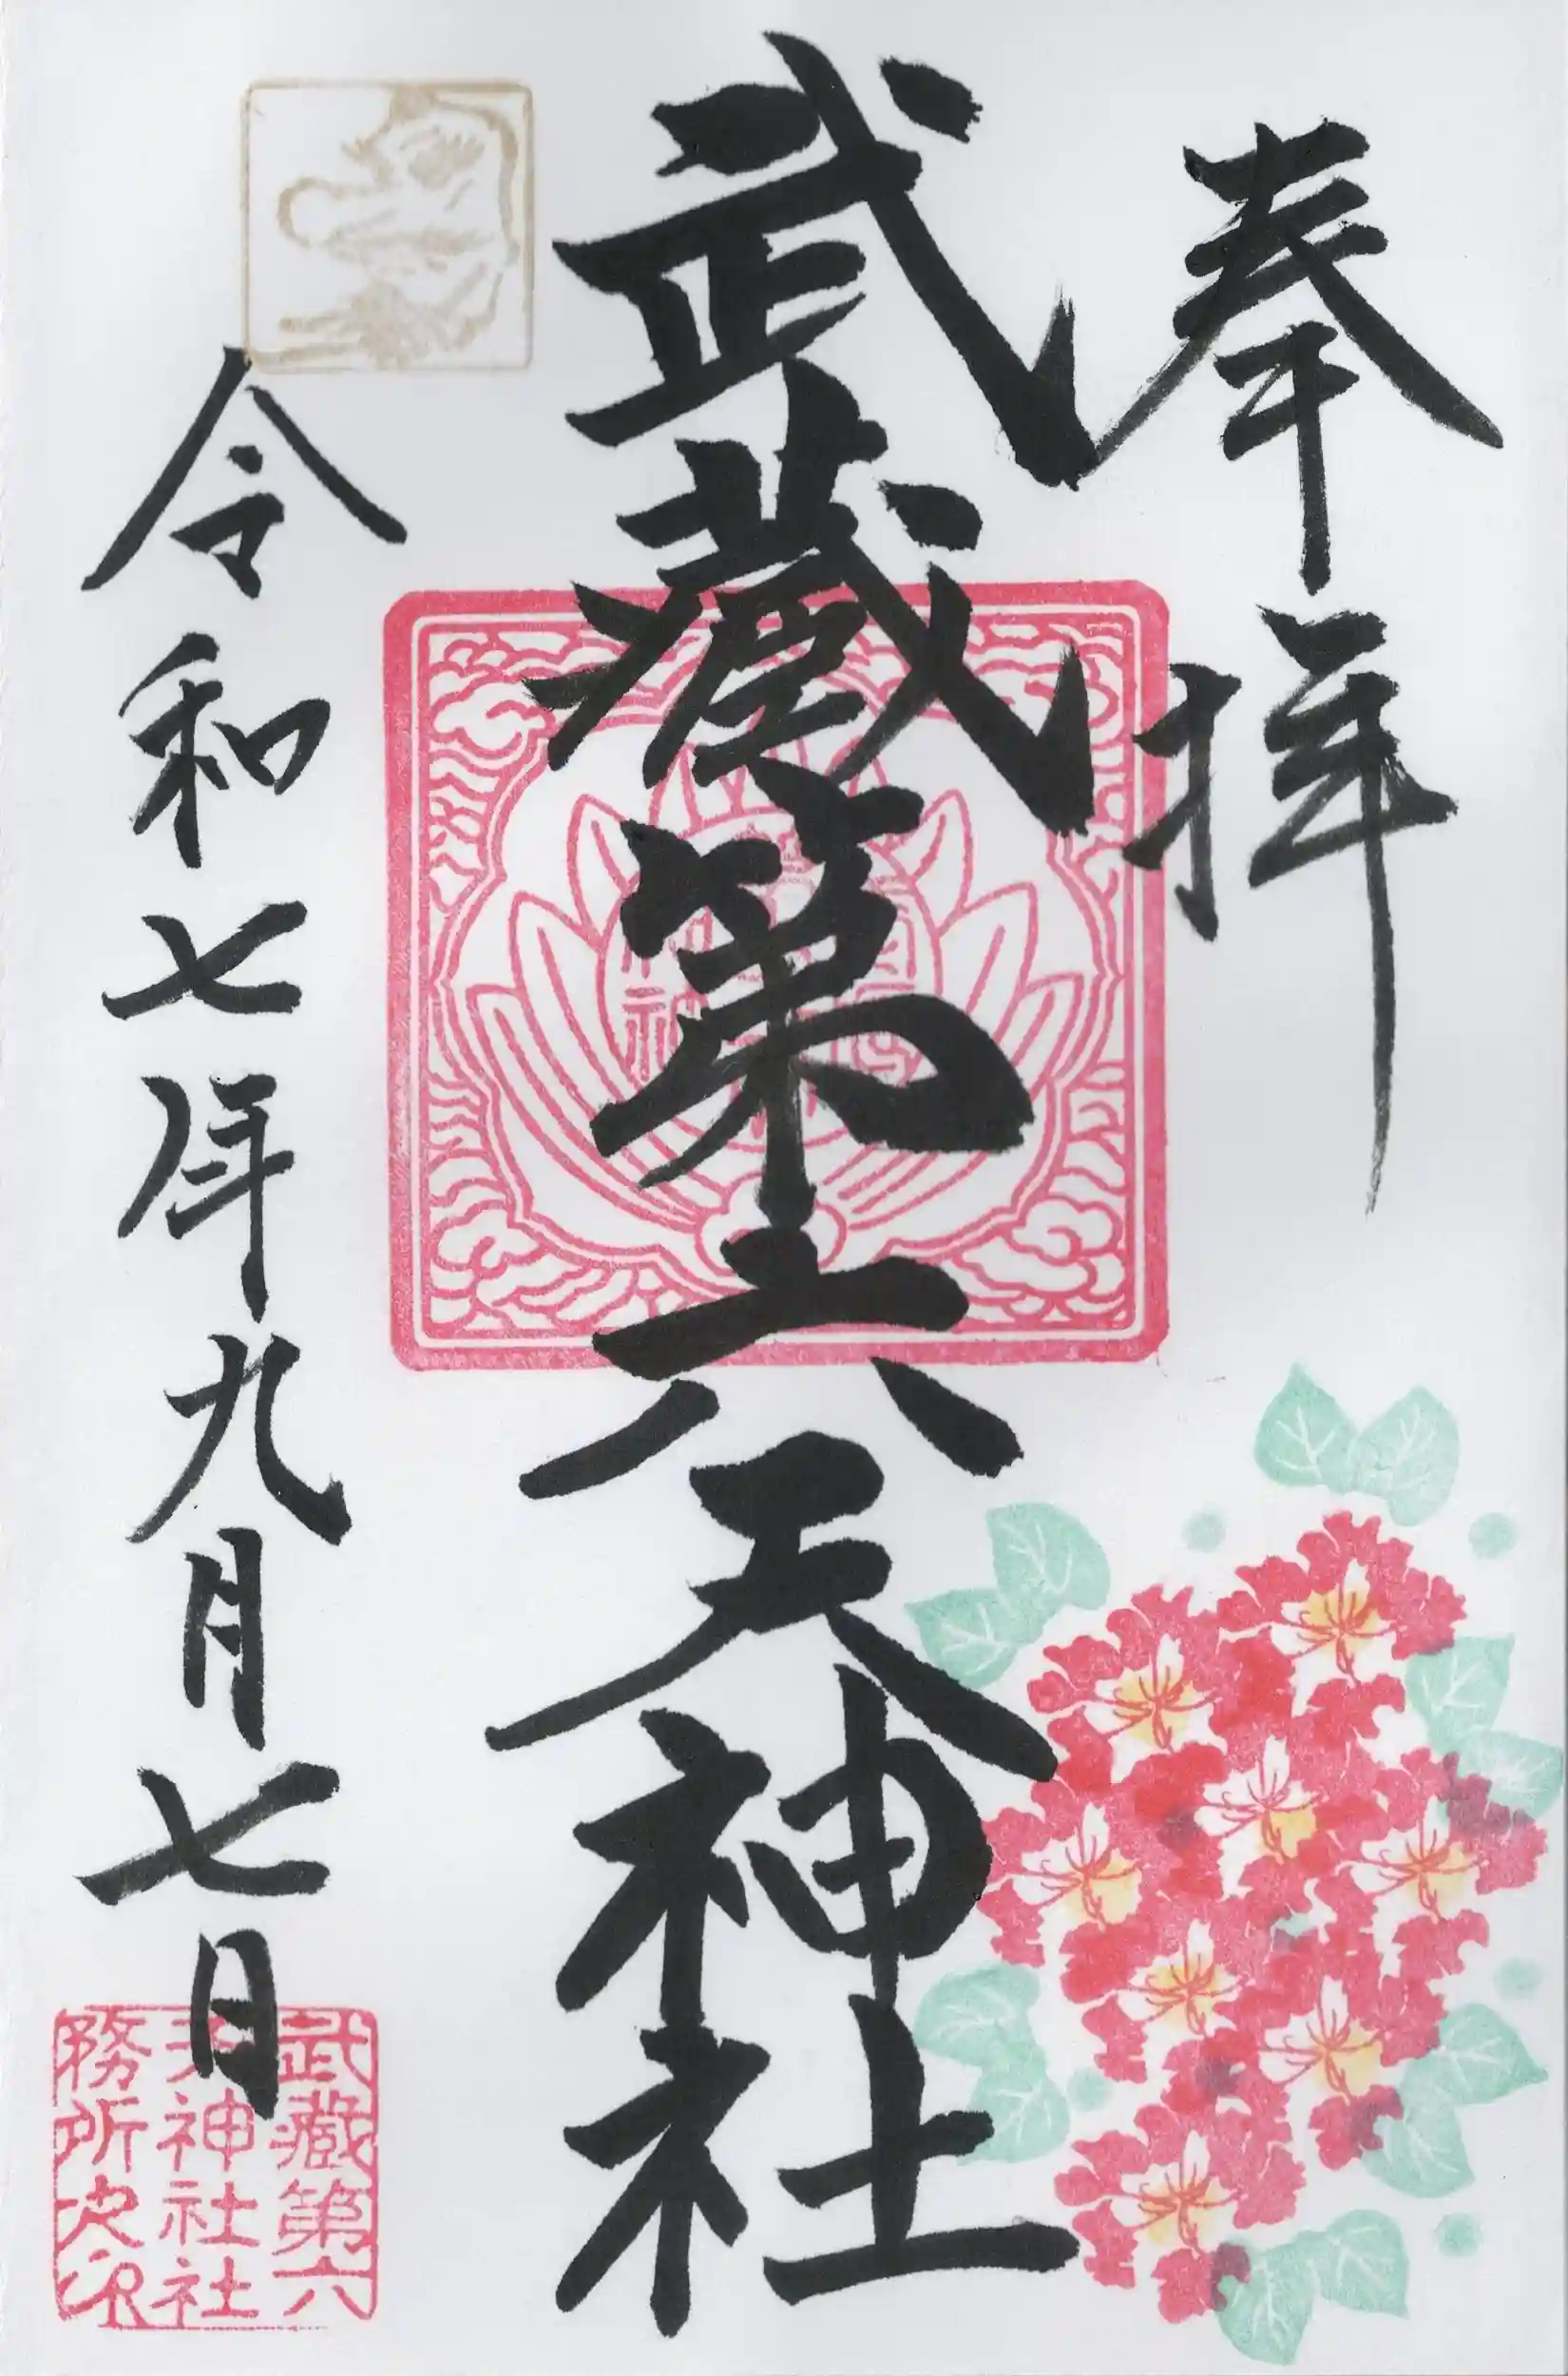 奉拝
武蔵第六天神社
令和七年九月七日
武蔵第六
天神社社
務所之印